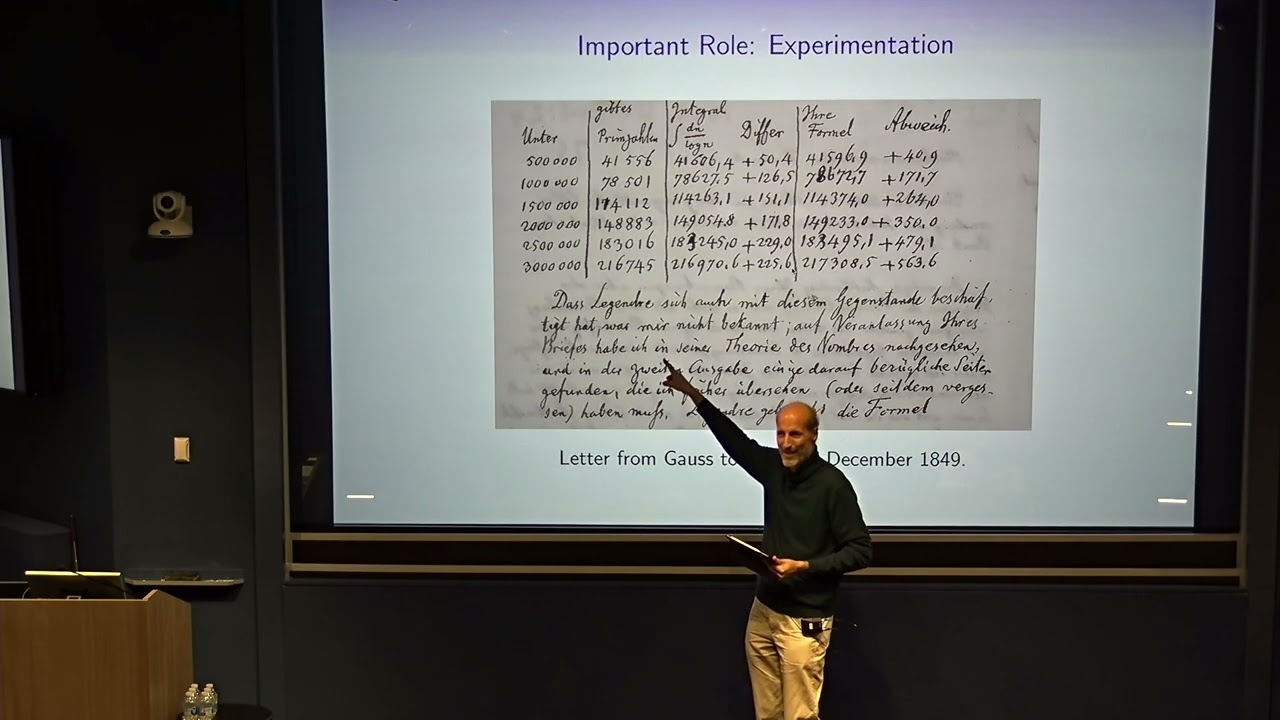 Important Role: Experimentation
gibtes Integral Ihre
Unter Primzahlen ∫ dn/log n Differ Formel Abweich.
500000 41556 41606,4 +50,4 41596,9 +40,9
1000000 78501 78627,5 +126,5 78672,7 +171,7
1500000 114112 114263,1 +151,1 114374,0 +264,0
2000000 148883 149054,8 +171,8 149233,0 +350,0
2500000 183016 183245,0 +229,0 183495,1 +479,1
3000000 216745 216970,6 +225,6 217308,5 +563,6
Dass Legendre sich auch mit diesem Gegenstande beschäf
tigt hat, war mir nicht bekannt; auf Veranlassung Ihres
Briefes habe ich in seiner Theorie des Nombres nachgesehen,
und in der zweiten Ausgabe einige darauf bezügliche Seiten
gefunden, die ich früher übersehen (oder seitdem verges-
sen) haben muss. Legendre die Formel
Letter from Gauss to December 1849.